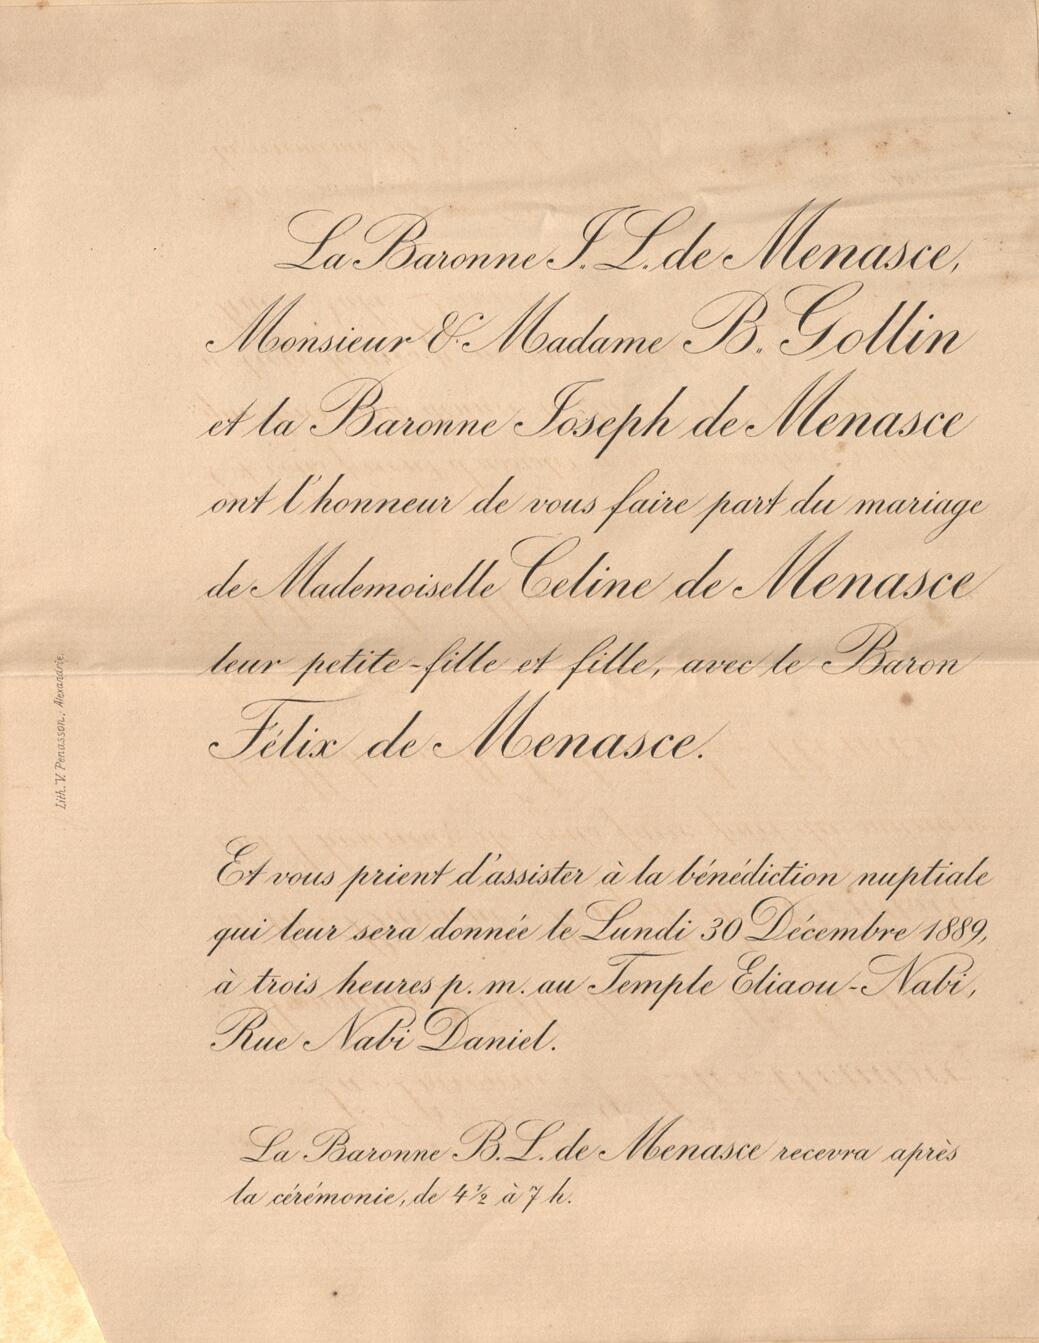 La Baronne J. L. de Menasce,
Monsieur & Madame B. Gollin
et la Baronne Joseph de Menasce
ont l'honneur de vous faire part du mariage
de Mademoiselle Celine de Menasce
leur petite-fille et fille, avec le Baron
Félix de Menasce.
Et vous prient d'assister à la bénédiction nuptiale
qui leur sera donnée le Lundi 30 Décembre 1889,
à trois heures p. m. au Temple Eliaou-Nabi,
Rue Nabi Daniel.
La Baronne B. L. de Menasce recevra après
la cérémonie, de 4½ à 7 h.
Lith. V. Penasson, Alexandrie.